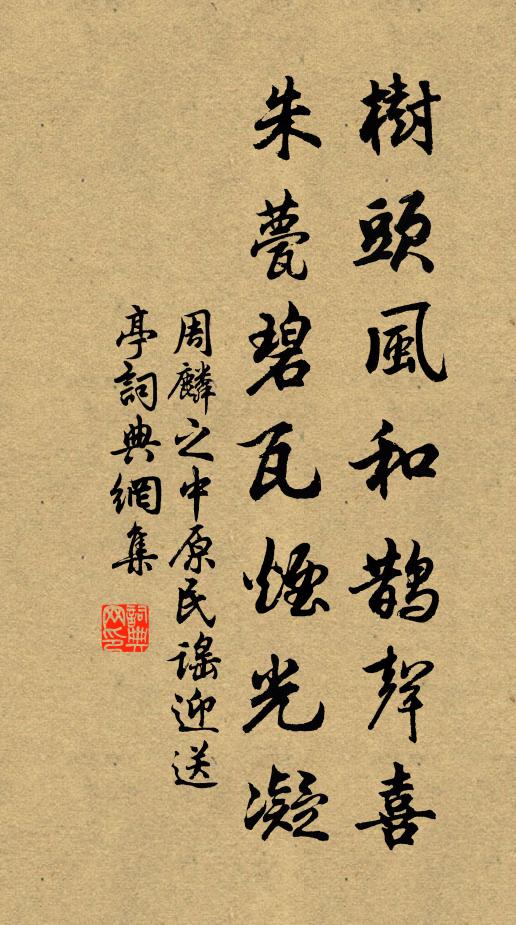 樹頭風和鵲聲喜
朱甍碧瓦煙光凝
周麟之中原民謠迎送
亭詞典網集
詞典
网印